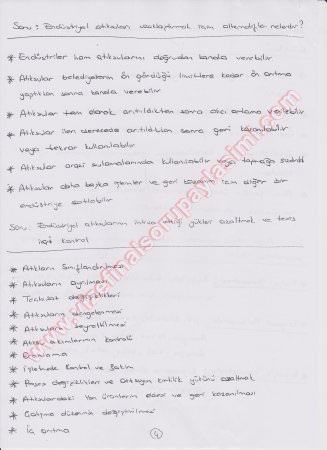 Soru: Endüstriyel atıkları uzaklaştırmak için alternatifler nelerdir?
* Endüstriler ham atıksularını doğrudan kanala verebilir
* Atıksular belediyelerin ön gördüğü limitlere kadar ön arıtma
yaptıktan sonra kanala verebilir
* Atıksular tam olarak arıtıldıktan sonra alıcı ortama verilebilir
* Atıksular ileri derecede arıtıldıktan sonra geri kazanılabilir
veya tekrar kullanılabilir
* Atıksular arazi sulamalarında kullanılabilir veya toprağa
* Atıksular daha başka işlemler ve geri kazanım için diğer bir
endüstriye satılabilir
Soru: Endüstriyel atıksuların ihtiva ettiği yükleri azaltmak ve tesis
içi kontrol
* Atıkların Sınıflandırılması
* Atıksuların ayrılması
* Tecksat değişiklikleri
* Atıksuların dengelenmesi
* Atıksuların seyreltilmesi
* Atık akımlarının kontrolü
* Oranlama
* İşletmede Kontrol ve Bakım
* Proses değişiklikleri ve Ortalığın kirlilik yükünü azaltmak
* Atıksulardaki Yan ürünlerin elde ve geri kazanılması
* Çalışma düzeninin değiştirilmesi
* İç arıtma
4
www.vizefinalsorupaylasimi.com